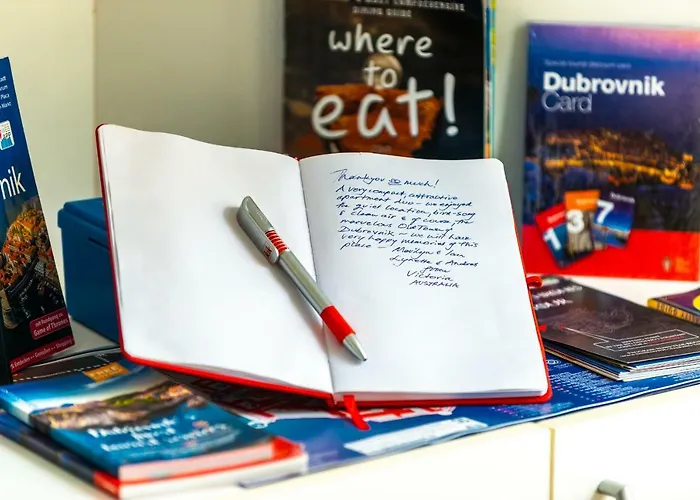 DINING GUIDE
where
to
eat!
Dubrovnik
Card
1
3
7
nik
Game of Thrones
Thankyou so much!
A very compact, attractive
apartment duo - we enjoyed
the quiet location, bird-song
& clean air & of course, the
marvelous Old Town of
Dubrovnik - we will have
very happy memories of this
place - Marilyn & Ian
Lynette & Andrea
From
Victoria
AUSTRALIA